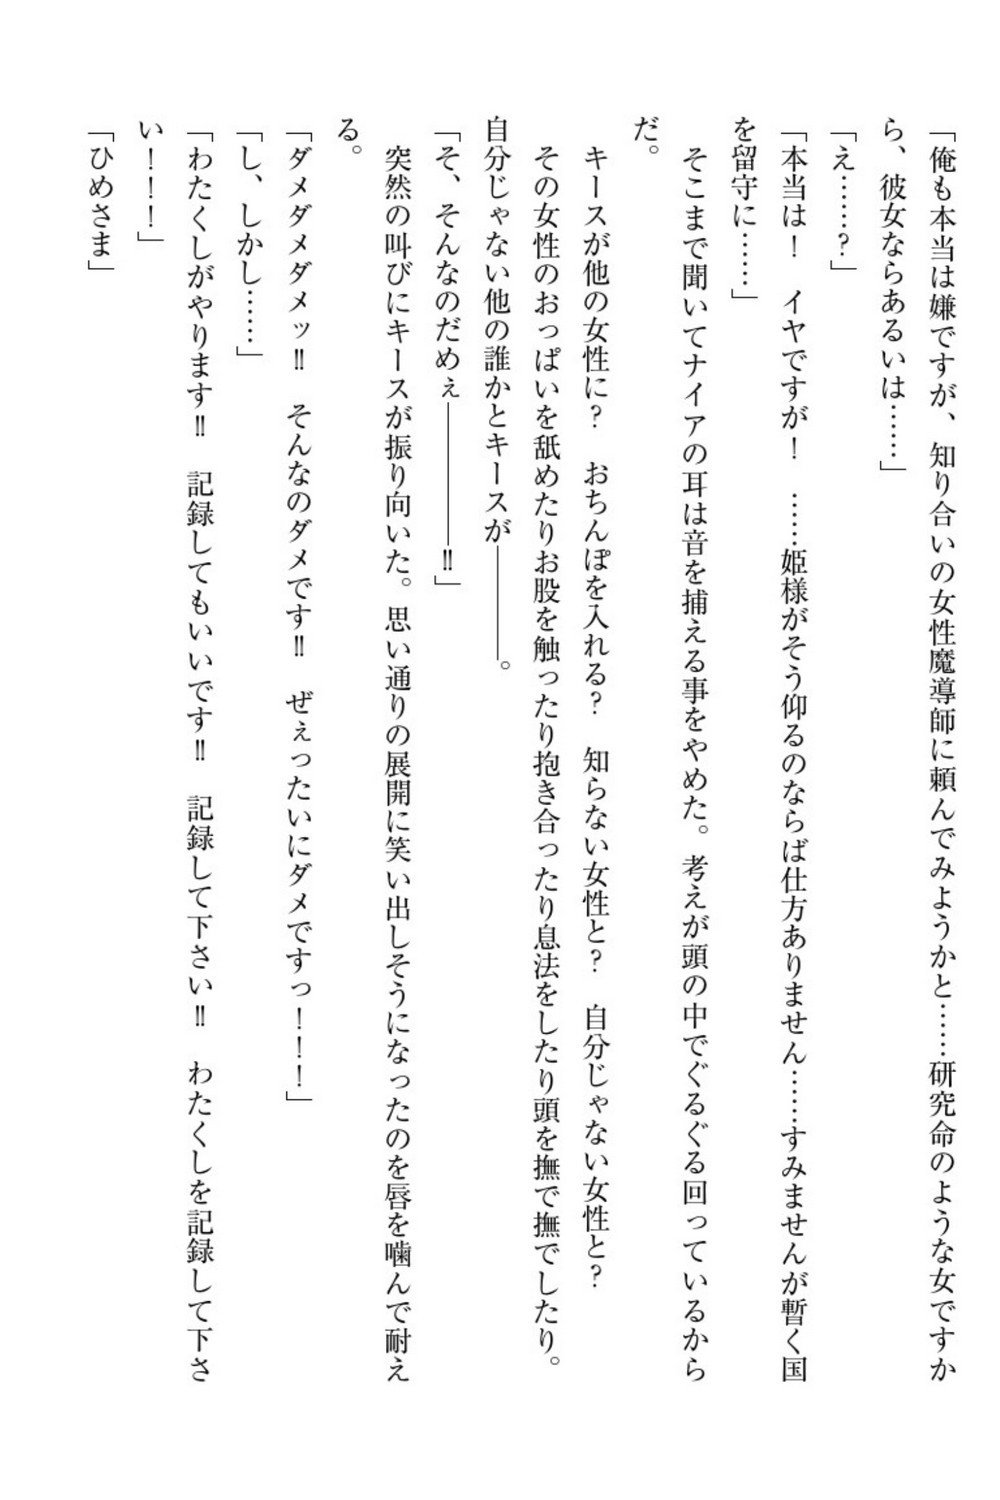 「俺も本当は嫌ですが、知り合いの女性魔導師に頼んでみようかと……研究命のような女ですか
ら、彼女ならあるいは……」
「え……？」
「本当は！　イヤですが！　……姫様がそう仰るのならば仕方ありません……すみませんが暫く国
を留守に……」
　そこまで聞いてナイアの耳は音を捕える事をやめた。考えが頭の中でぐるぐる回っているから
だ。
　キースが他の女性に？　おちんぽを入れる？　知らない女性と？　自分じゃない女性と？
　その女性のおっぱいを舐めたりお股を触ったり抱き合ったり息法をしたり頭を撫で撫でしたり。
自分じゃない他の誰かとキースが――――。
「そ、そんなのだめぇ――――――‼」
　突然の叫びにキースが振り向いた。思い通りの展開に笑い出しそうになったのを唇を噛んで耐え
る。
「ダメダメダメッ‼　そんなのダメです‼　ぜぇったいにダメですっ！！！」
「し、しかし……」
「わたくしがやります‼　記録してもいいです‼　記録して下さい‼　わたくしを記録して下さ
い！！！」
「ひめさま」